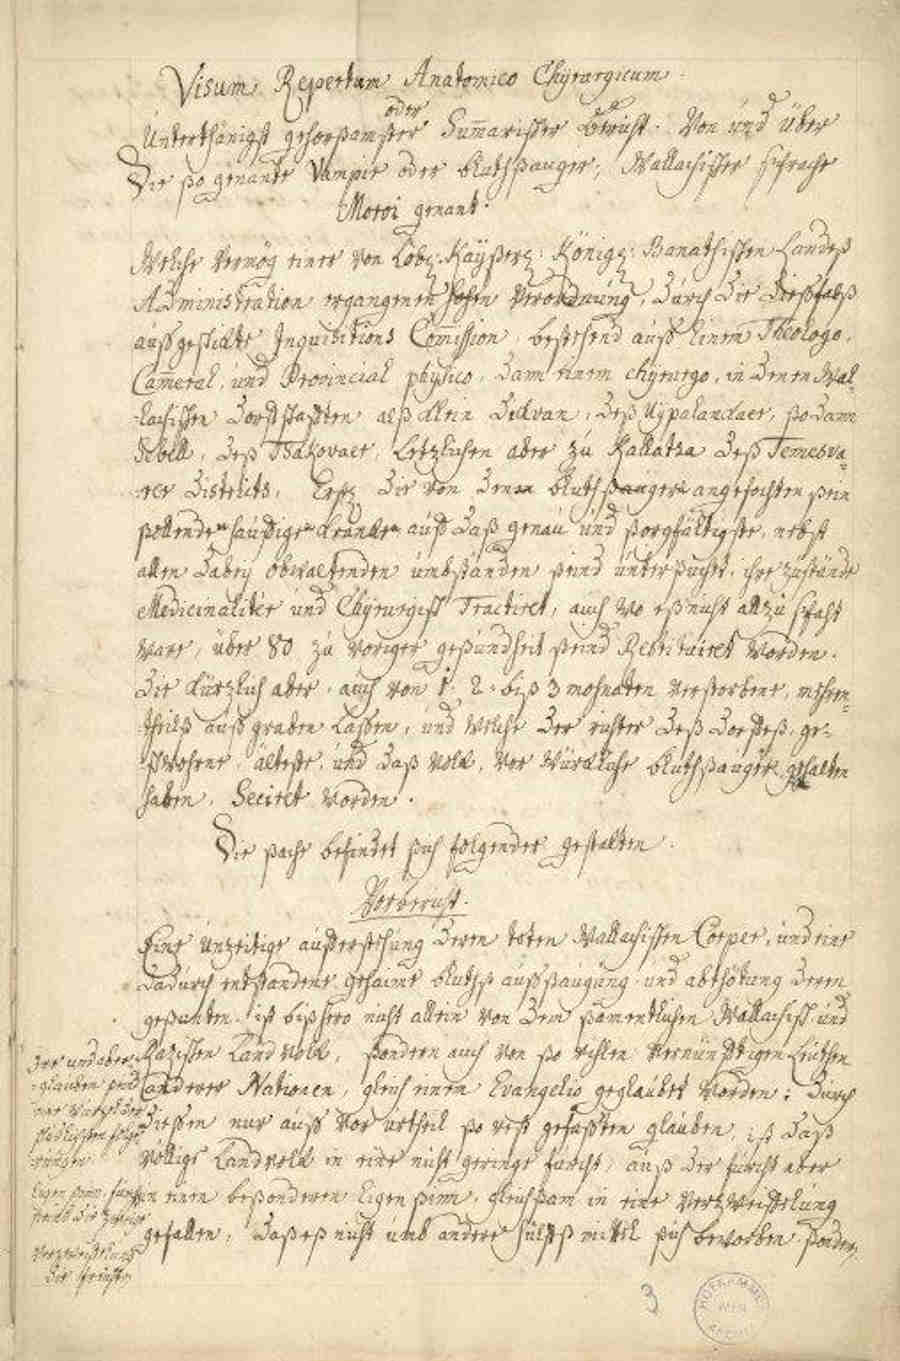 Visum Repertum Anatomico Chyrurgicum.
oder
Unterthänigst gehorßamster Summarischer Bericht. Von und über
Die ßo genante Vampir oder bluthßauger, Wallachischer sprache
Moroi genant.
Welche vermög einer von Löbl: Kayßerl: Königl: Banathischen Landeß
Administration ergangenen hohen verordnung, durch die dießfalß
außgeschickte Inquisitions Commission, bestehend auß einem Theologo,
Cameral, und Provincial physico, dann einem chyrurgo, in denen Wal-
lachischen dorffschafften alß klein Dikvan, deß Uypalankaer, ßo dann
Sebell, deß Tsakovaer, Letzlichen aber zu Kallatsa deß Temesva-
rer districts, die von denen bluthßaugern angefochten ßein
ßollende häuffige krancke auff daß genau und ßorgfältigste, nebst
allen dabey obwaltenden umbständen ßeind unterßuchet, ihre zustände
Medicinaliter und Chyrurgisch Tractiret, auch wo eß nicht allzu spaht
ware, über 80 zu voriger geßundheit ßeind Restituiret worden.
Die kürzlich aber, auch von 1. 2. biß 3 mohnaten verstorbene, mehren-
theilß auß graben laßen, und welche der richter deß dorffeß, ge-
schwohrne, älteste, und daß volk, vor würckliche bluthßauger gehalten
haben, Seciret worden.
Die ßache befindet ßich folgender gestalten.
Vorbericht.
Eine unzeitige aufferstehung deren toten Wallachischen Cörper, und eine
dadurch entstandene gehaime bluths außßaugung und abthötung deren
geßunten, ist bißhero nicht allein von dem ßamentlichen Wallachisch und
Razischen Land volk, ßondern auch von ßo vielen vernünfftigen Leuthen
anderer Nationen, gleich einem Evangelio geglaubet worden; durch
dießen nur auß vor urtheil ßo vest gefaßten glauben, ist daß
völlige Landvolk in eine nicht geringe furcht, auß der furcht aber
in einen beßonderen Eigenßinn, gleichßam in eine verzweiffelung
gefallen, daß eß nicht umb andere hülffß mittel ßich beworben ßonder,
Irr und aber
-glauben ßind
Eigen ßinn, furcht
ßeind die
verzweiffelung
die
3
HOFKAMMER
WIEN
ARCHIV